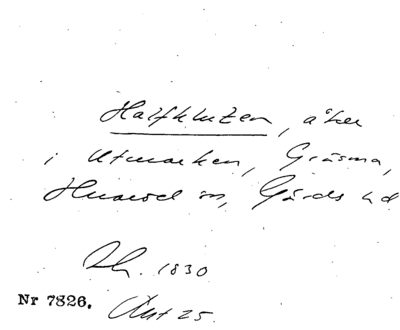 Halfkluten, åker
i Utmarken, Gräsma,
Hnarod sn, Gärds hd
Sk. 1830
Nr 7826. Akt 25